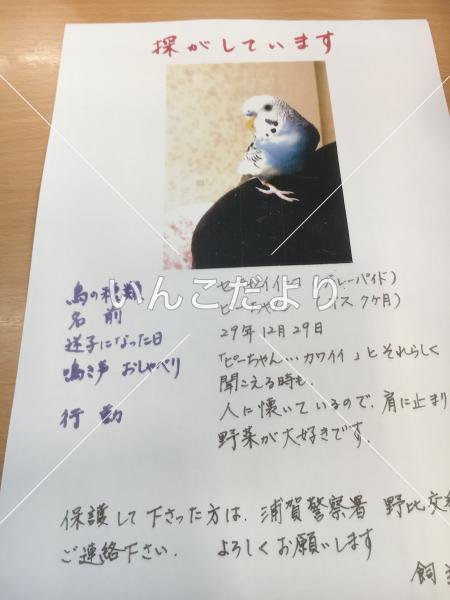 探がしています
鳥の種類 セキセイインコ レーパイド)
名前 ピーちゃん ス 7ヶ月)
迷子になった日 29年12月29日
鳴き声 おしゃべり 「ピーちゃん…カワイイ」とそれらしく
聞こえる時も.
行動 人に懐いているので、肩に止まり
野菜が大好きです.
保護して下さった方は、浦賀警察署 野比交
ご連絡下さい. よろしくお願いします
飼
いんこだより